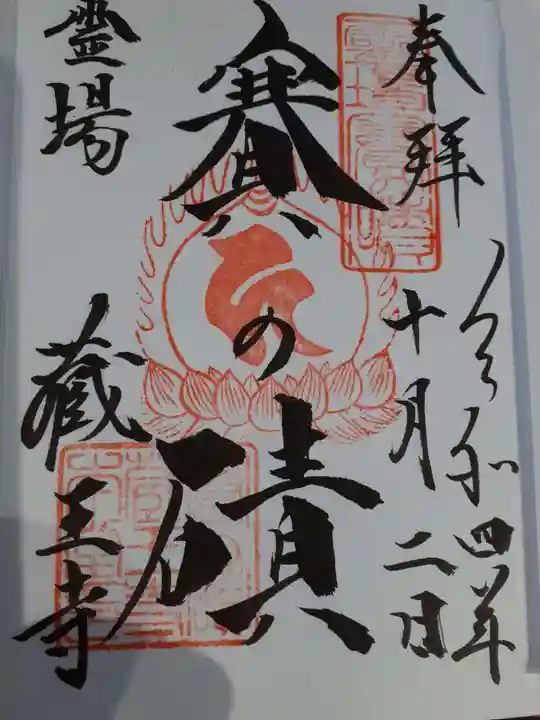 奉拝
令和四年
十月二日
賽の磧
霊場
蔵王寺